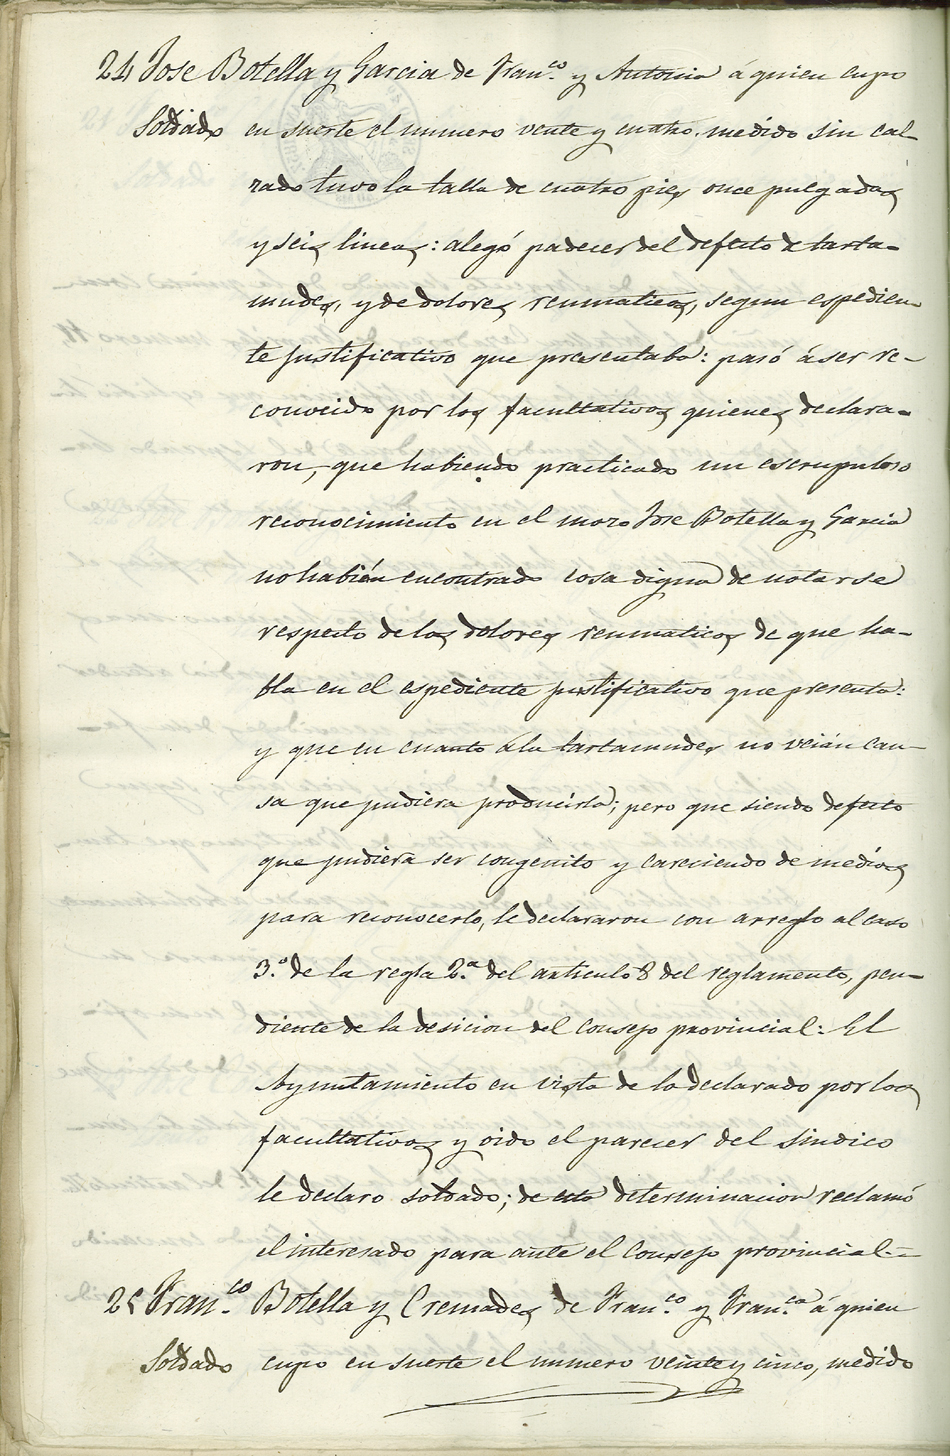 24 Jose Botella y Garcia de Fran.co y Antonia á quien cupo
Soldado en suerte el numero vente y cuatro, medido sin cal
zado tuvo la talla de cuatro pies once pulgadas
y seis lineas: alegó padecer del defecto de tarta-
mudes, y de dolores reumaticos, segun espedien-
te justificativo que presentaba: pasó á ser re-
conocido por los facultativos quienes declara-
ron, que habiendo practicado un escrupuloso
reconocimiento en el mozo Jose Botella y Garcia
no habián encontrado cosa digna de notarse
respecto de los dolores reumaticos de que ha-
bla en el espediente justificativo que presenta:
y que en cuanto á la tartamudes no veián cau-
sa que pudiera producirla; pero que siendo defecto
que pudiera ser congenito y careciendo de medios
para reconocerlo, le declararon con arreglo al caso
3.º de la regla 2.ª del articulo 8 del reglamento, pen-
diente de la desicion del Consejo provincial: El
Ayuntamiento en vista de lo declarado por los
facultativos y oido el parecer del sindico
le declaro soldado; de esta determinacion reclamó
el interesado para ante el Consejo provincial.=
25 Fran.co Botella y Cremades de Fran.co y Fran.ca á quien
Soldado cupo en suerte el numero veinte y cinco, medido